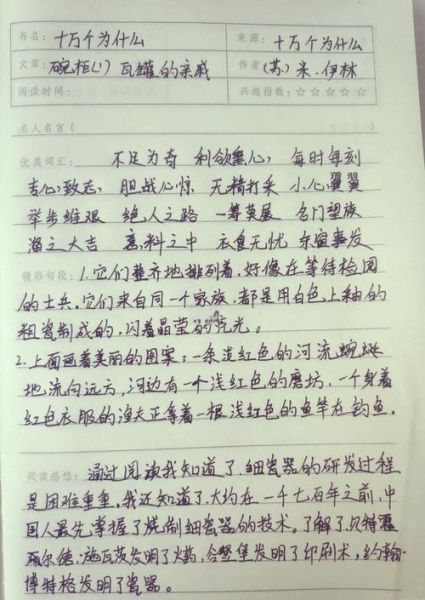 书名： 十万个为什么 来源： 十万个为什么
文章： 碗柜(1) 瓦罐的亲戚 作者 (苏) 米·伊林
阅读时间： 兴趣指数：☆☆☆☆☆
名人名言(
优美词汇： 不足为奇 利欲熏心 每时每刻
专心致志 胆战心惊 无精打采 小心翼翼
举步维艰 绝人之路 一筹莫展 名门望族
溜之大吉 意料之中 衣食无忧 东窗事发
精彩句段：1.它们整齐地排列着，好像在等待检阅
的士兵。它们来自同一个家族，都是用白色上釉的
粗瓷制成的，闪着晶莹的亮光。
2.上面画着美丽的图案：一条浅红色的河流蜿蜒
地流向远方，河边有一个浅红色的磨坊，一个身着
红色衣服的渔夫正等着一根浅红色的鱼竿在钓鱼。
阅读感想： 通过阅读我知道了细瓷器的研发过程
是困难重重，我还知道了大约在一千七百年之前，中
国人最先掌握了烧制细瓷器的技术。了解了贝特霍
尔德·施瓦茨发明了火药，谷登堡发明了印刷术，约翰·
博特格发明了瓷器。